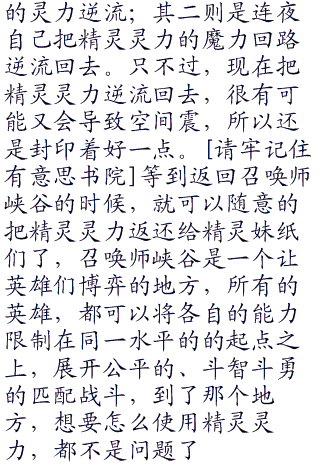 的灵力逆流；其二则是连夜
自己把精灵灵力的魔力回路
逆流回去。只不过，现在把
精灵灵力逆流回去，很有可
能又会导致空间震，所以还
是封印着好一点。[请牢记住
有意思书院]等到返回召唤师
峡谷的时候，就可以随意的
把精灵灵力返还给精灵妹纸
们了，召唤师峡谷是一个让
英雄们博弈的地方，所有的
英雄，都可以将各自的能力
限制在同一水平的的起点之
上，展开公平的、斗智斗勇
的匹配战斗，到了那个地
方，想要怎么使用精灵灵
力，都不是问题了